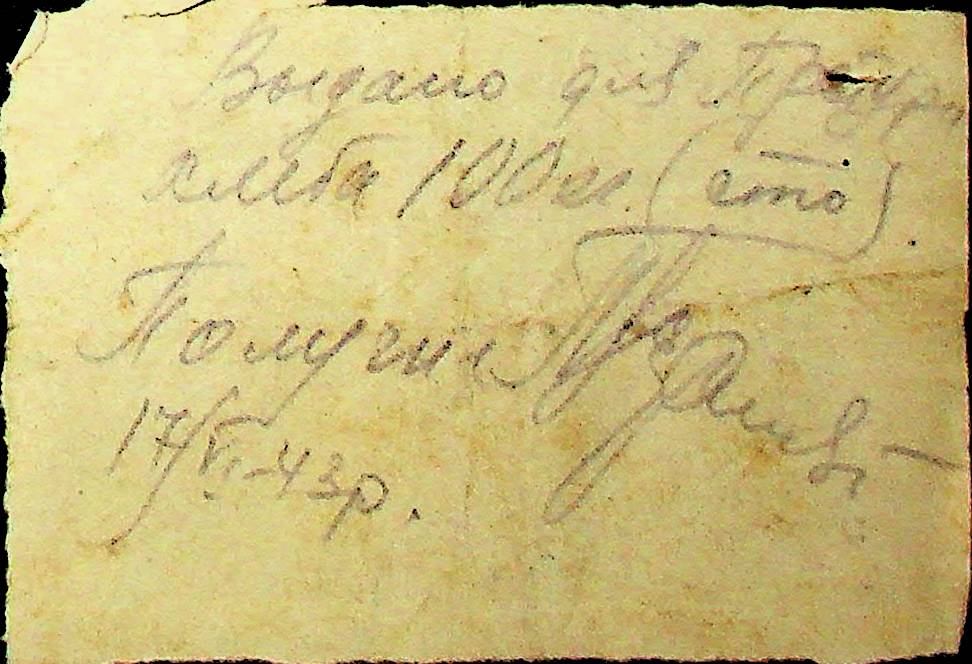 Выдано для
хлеба 100 кг. (сто)
Получил
17/VI-43р.